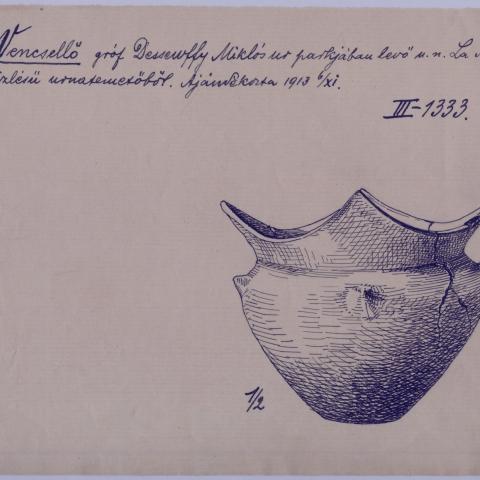 Vencsellő gróf Dessewffy Miklós ur parkjában levő u.n. La
izlésü urnatemetőből. Ajándékozta 1913 6/XI.
III-1333.
1/2